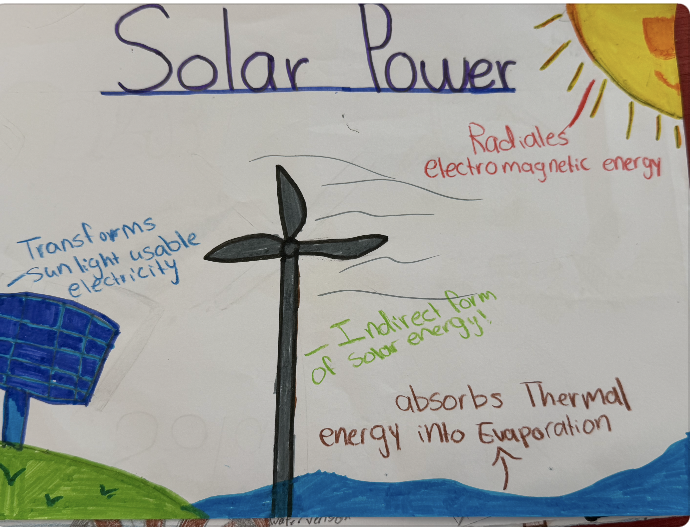 Solar Power
Radiates
electromagnetic energy
Transforms
sunlight usable
electricity
Indirect form
of solar energy!
absorbs Thermal
energy into Evaporation